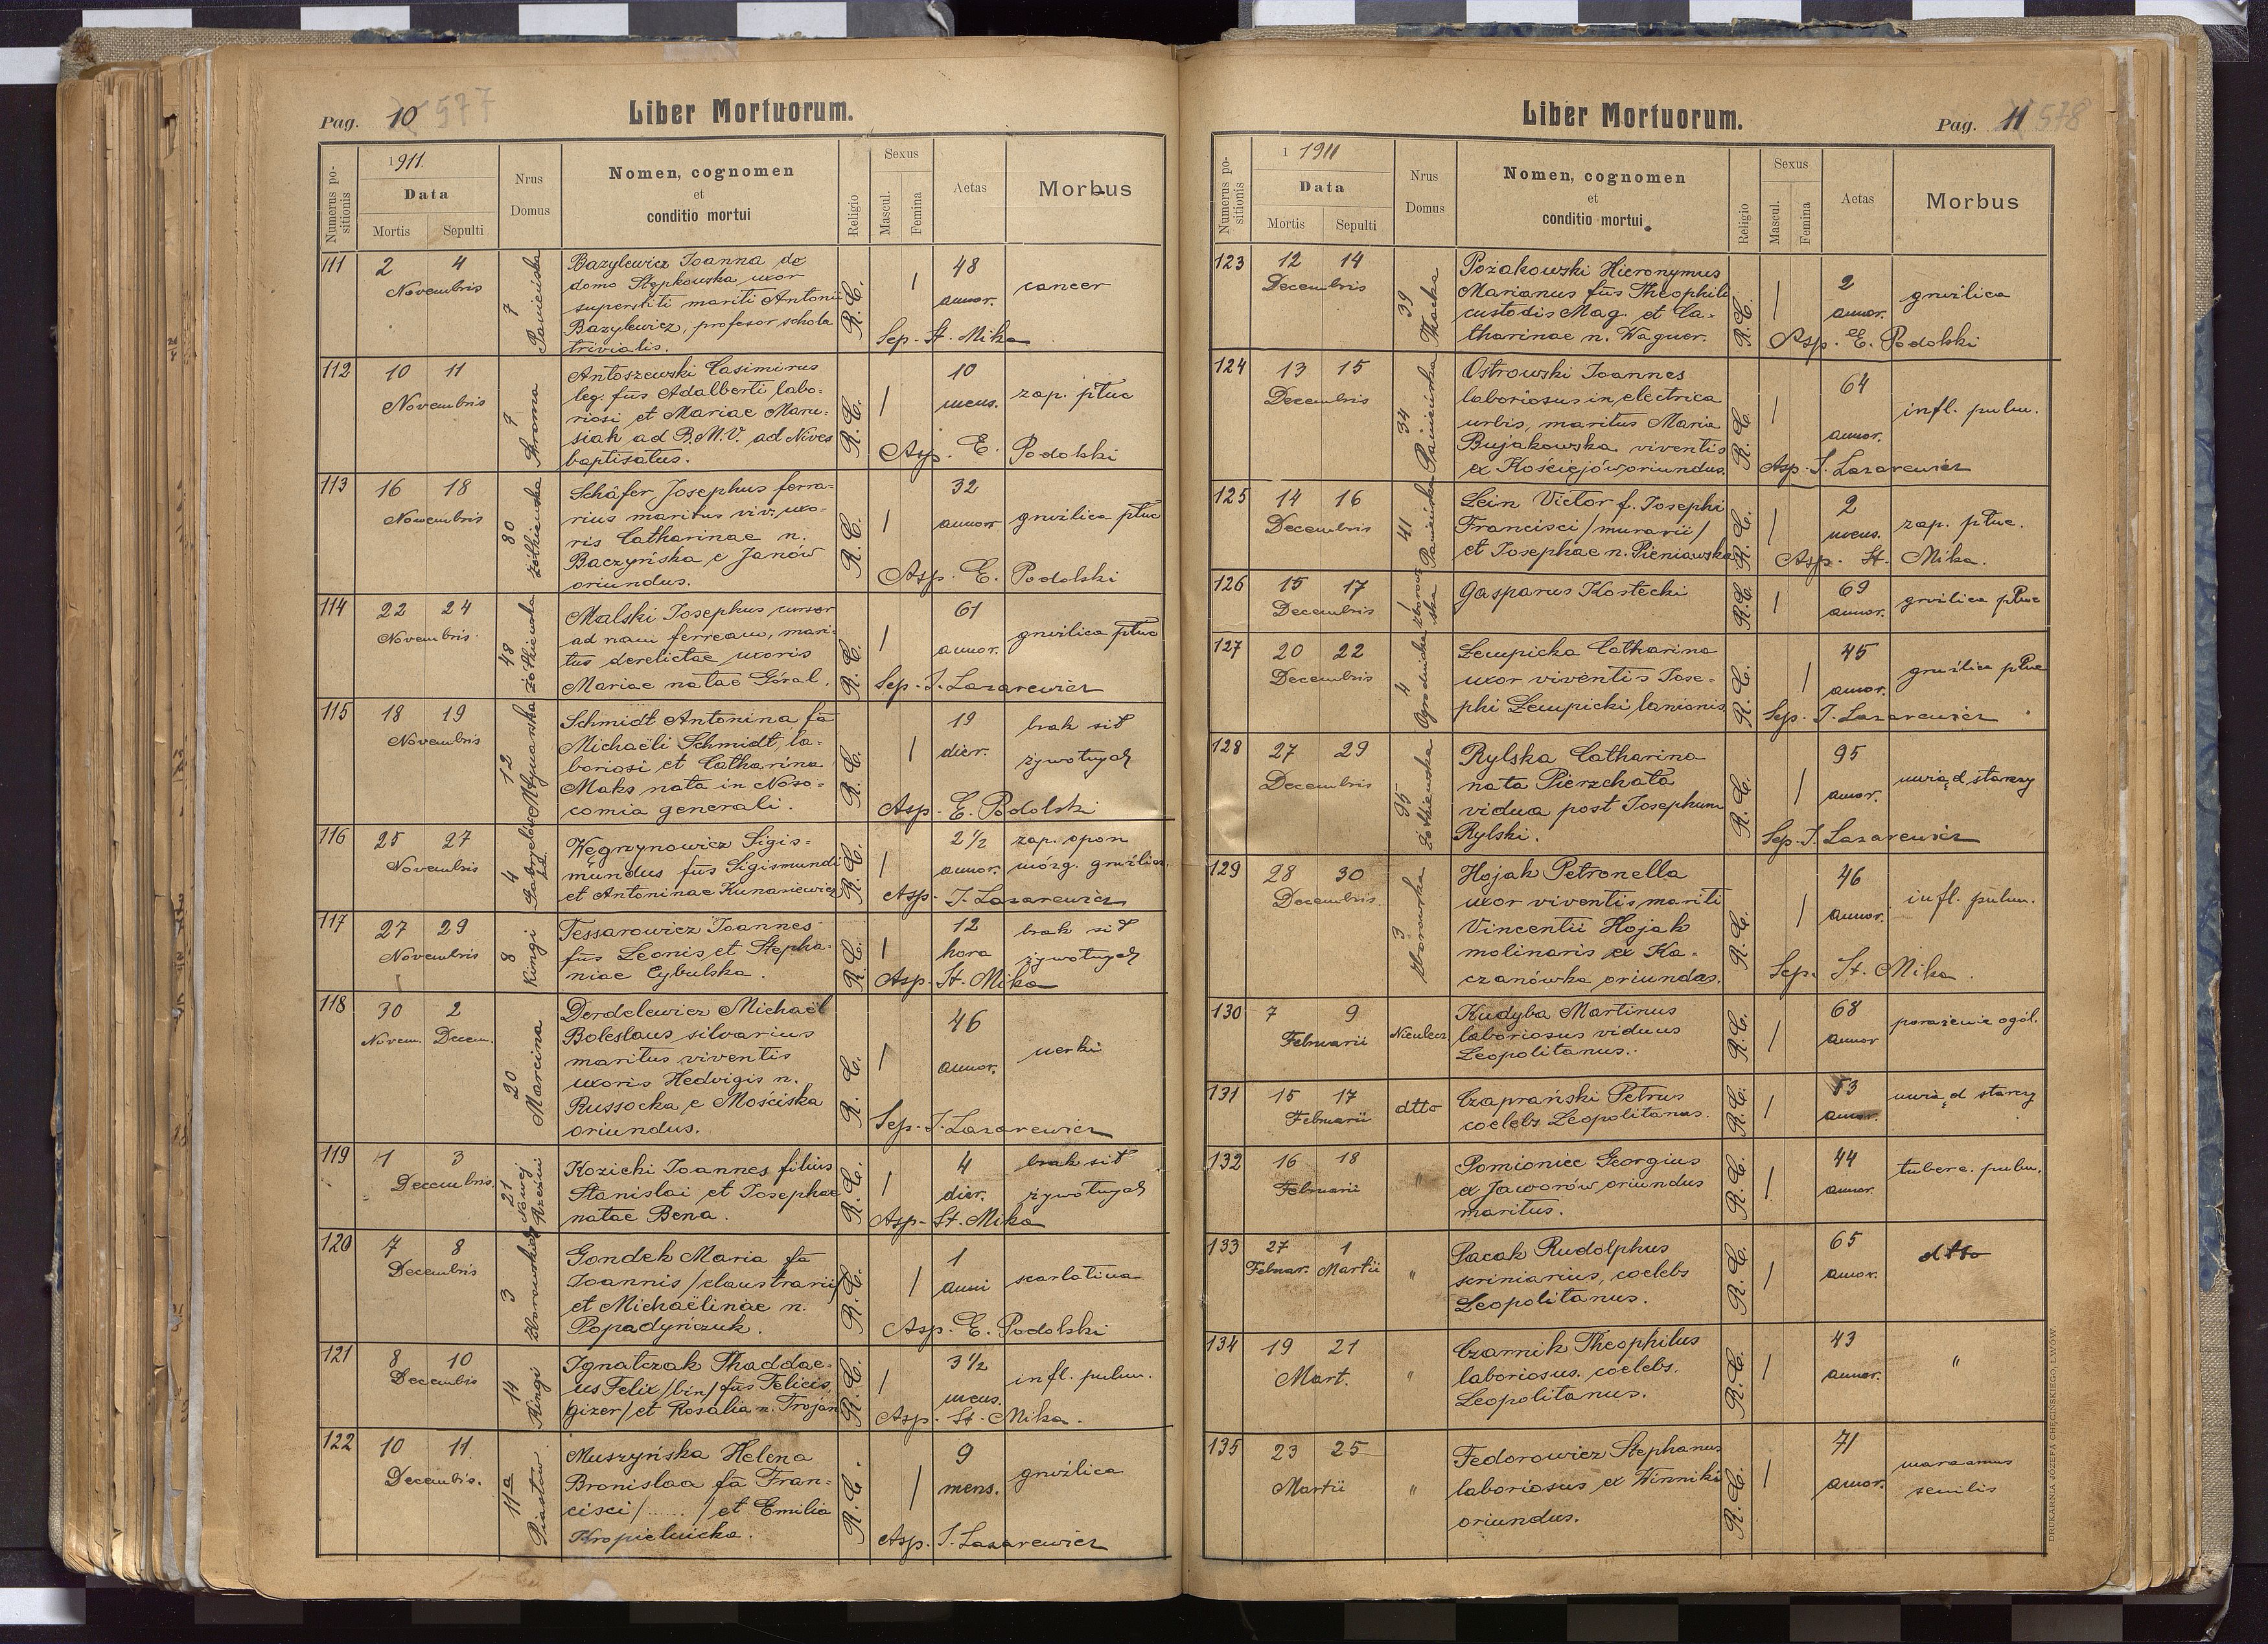 Pag. 10 577
Liber Mortuorum.
Numerus positionis
1911.
Data
Mortis Sepulti
Nrus Domus
Nomen, cognomen
et
conditio mortui
Religio
Sexus
Mascul. Femina
Aetas
Morbus
111 2 4 Novembris 7
Bazylewicz Joanna de
domo Stępkowska, uxor
superstiti mariti Antonii
Bazylewicz, profesor schola
trivialis.
R. C. 1 48 annor. cancer
Sep. St. Mika
112 10 11 Novembris 7
Antoszewski Casimirus
leg. fius Adalberti labo-
riosi et Mariae Maru-
siak ad B.M.V. ad Nives
baptisatus.
R. C. 1 10 mens. zap. płuc
Asp. E. Podolski
113 16 18 Novembris 80 Żółkiewska
Schäfer Josephus ferra-
rius maritus viv. uxo-
ris Catharinae n.
Baczyńska e Janów
oriundus.
R. C. 1 32 annor gruźlica płuc
Asp. E. Podolski
114 22 24 Novembris 48 Żółkiewska
Malski Josephus cursor
ad viam ferream, mari-
tus derelictae uxoris
Mariae natae Góral.
R. C. 1 61 annor. gruźlica płuc
Sep. J. Lazarewicz
115 18 19 Novembris 12
Schmidt Antonina fa
Michaëli Schmidt, la-
boriosi et Catharina
Maks nata in Noso-
comia generali.
R. C. 1 19 dier. brak sił
żywotnych
Asp. E. Podolski
116 25 27 Novembris 4
Węgrzynowicz Sigis-
mundus fius Sigismundi
et Antoninae Kunasiewicz
R. C. 1 2 1/2 annor. zap. opon
mózg. gruźlicz.
Asp. J. Lazarewicz
117 27 29 Novembris 8 Kingi
Tessarowicz Joannes
fius Leonis et Stepha-
niae Cybulska.
R. C. 1 12 hora brak sił
żywotnych
Asp. St. Mika
118 30 2 Novem. Decem. 20 Marcina
Derdelewicz Michaël
Boleslaus silvarius
maritus viventis
uxoris Hedvigis n.
Russocka e Mościska
oriundus.
R. C. 1 46 annor. nerki
Sep. J. Lazarewicz
119 1 3 Decembris. 21 Nowej Rzeźni
Kozicki Joannes filius
Stanislai et Josephae
natae Bena.
R. C. 1 4 dier. brak sił
żywotnych
Asp. St. Mika
120 7 8 Decembris 3 Zborowskiej
Gondek Maria fa
Joannis /claustrarii/
et Michaëlinae n.
Popadyńczuk.
R. C. 1 1 anni scarlatina
Asp. E. Podolski
121 8 10 Decembis 14 Kingi
Ignatczak Thaddae-
us Felix /bin/ fius Felicis,
gizer/ et Rosalia n. Trojan
R. C. 1 3 1/2 mens. infl. pulm.
Asp. St. Mika.
122 10 11 Decembis. 11a Piastów.
Muszyńska Helena
Bronislaa fa Fran-
cisci /....../ et Emilia
Kropielnicka.
R. C. 1 9 mens. gruźlica
Asp. J. Lazarewicz
Liber Mortuorum.
Pag. 11 578
Numerus positionis
1 1911
Data
Mortis Sepulti
Nrus Domus
Nomen, cognomen
et
conditio mortui
Religio
Sexus
Mascul. Femina
Aetas
Morbus
123 12 14 Decembris 39 Tkacka
Pożakowski Hieronymus
Marianus fius Theophili
custodis Mag. et Ca-
tharinae n. Wagner.
R. C. 1 2 annor. gruźlica
Asp. E. Podolski
124 13 15 Decembris 34 Panieńska
Ostrowski Joannes
laboriosus in electrica
urbis, maritus Maria
Bujakowska viventis
ex Kościejów oriundus.
R. C. 1 64 annor. infl. pulm.
Asp. J. Lazarewicz
125 14 16 Decembris 41 Panieńska
Lein Victor f. Josephi
Francisci /murarii/
et Josephae n. Pieniawska
R. C. 1 2 mens. zap. płuc.
Asp. St. Mika.
126 15 17 Decembris 1 Zborowska
Gasparus Kostecki
R. C. 1 69 annor. gruźlica płuc
127 20 22 Decembris 4 Ogrodnicka
Łempicka Catharina
uxor viventis Jose-
phi Łempicki lanionis
R. C. 1 45 annor. gruźlica płuc
Sep. J. Lazarewicz
128 27 29 Decembris 95 Żółkiewska
Rylska Catharina
nata Pierzchała
vidua post Josephum
Rylski.
R. C. 1 95 annor. uwiąd starczy
Sep. J. Lazarewicz
129 28 30 Decembris. 3 Zborowska
Hojak Petronella
uxor viventis mariti
Vincentii Hojak
molinaris ex Ka-
czanówka oriundas.
R. C. 1 46 annor. infl. pulm.
Sep. St. Mika.
130 7 9 Februarii Nieulecz
Kudyba Martinus
laboriosus viduus
Leopolitanus.
R. C. 1 68 annor porażenie ogól.
131 15 17 Februarii dtto
Czaprański Petrus
coelebs Leopolitanus.
R. C. 1 53 annor. uwiąd starczy
132 16 18 Februarii "
Pomioniec Georgius
ex Jaworów oriundus
maritus.
R. C. 1 44 annor. tuberc. pulm.
133 27 1 Februar. Martii "
Pacak Rudolphus
scriniarius, coelebs
Leopolitanus.
R. C. 1 65 annor. dtto
134 19 21 Mart. "
Czarnik Theophilus
laboriosus. coelebs.
Leopolitanus.
R. C. 1 43 annor. "
135 23 25 Martii "
Fedorowicz Stephanus
laboriosus ex Winniki
oriundus.
R. C. 1 71 annor. marasmus
senilis
DRUKARNIA JÓZEFA CHĘCIŃSKIEGO, LWÓW.